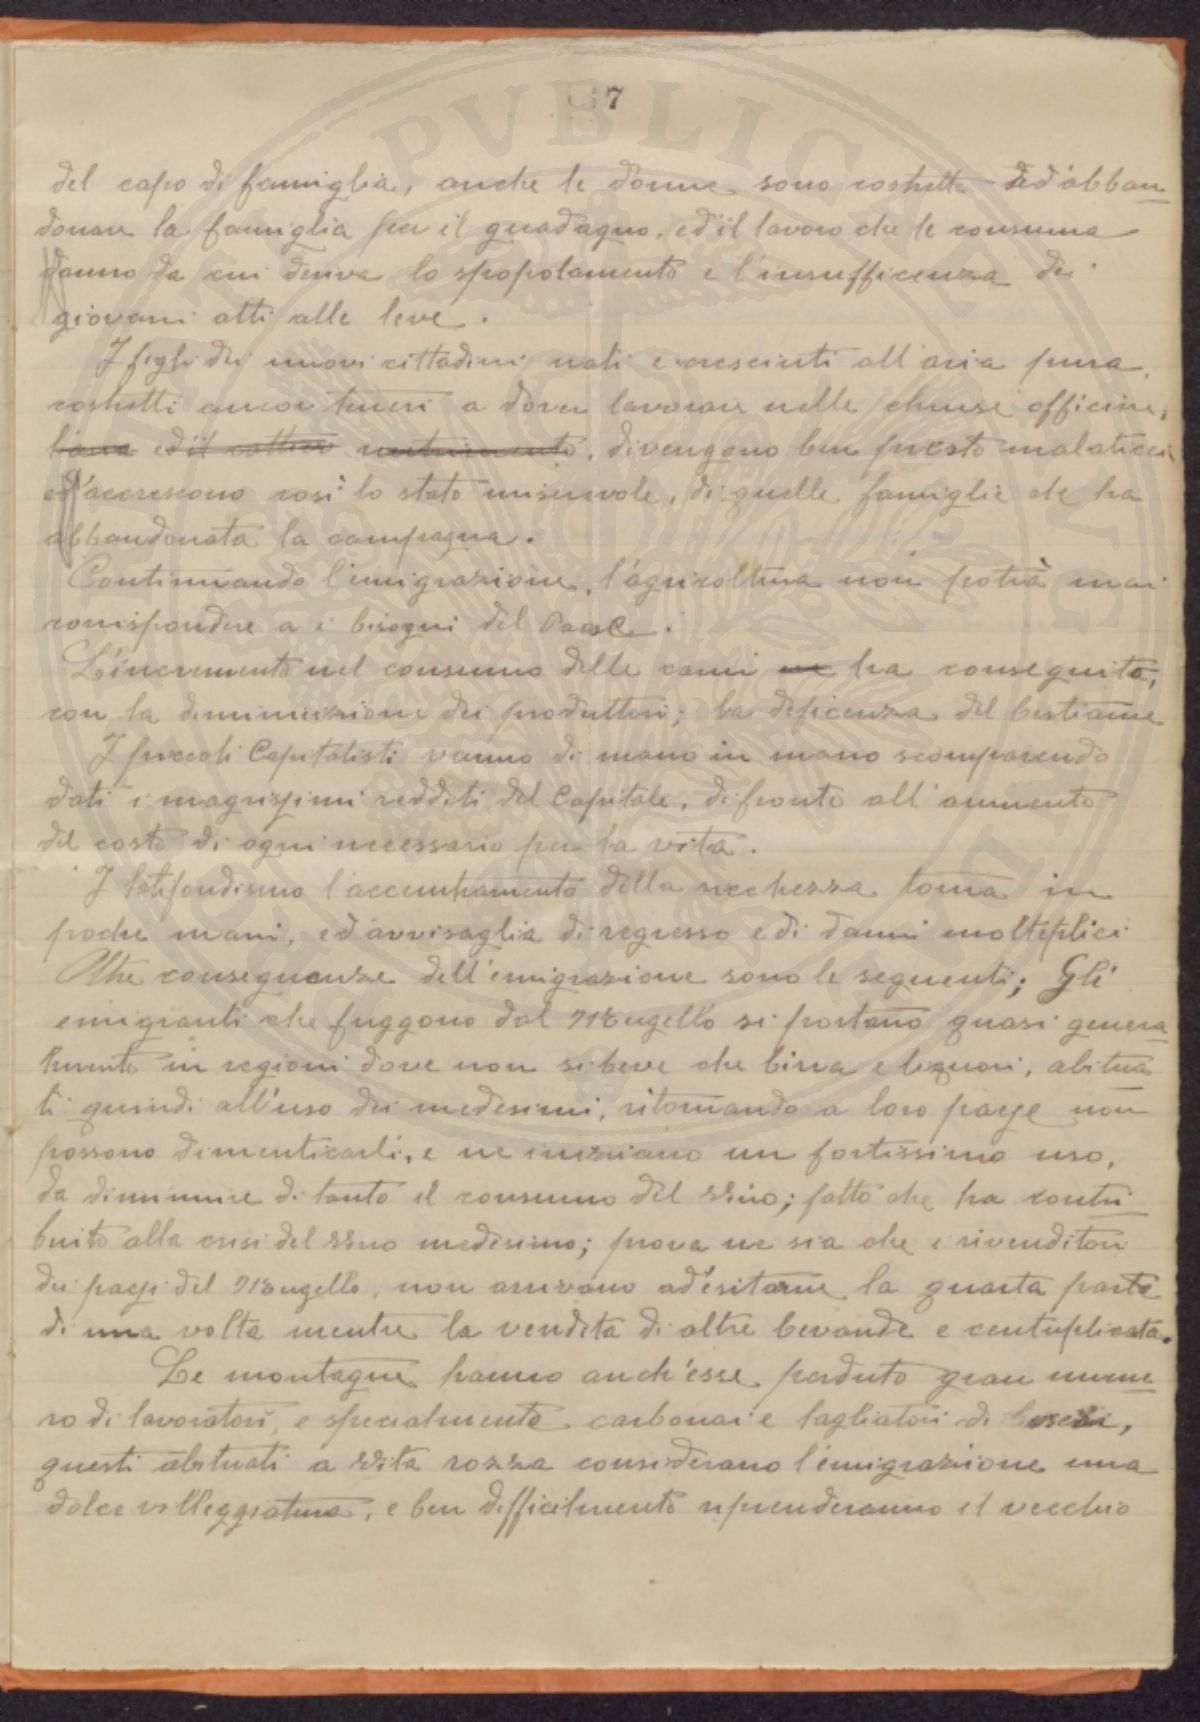 7
del capo di famiglia, anche le donne sono costrette ad'abban
donare la famiglia per il guadagno, ed'il lavoro che le consuma
danno da cui deriva lo spopolamento e l'insufficenza dei
giovani atti alle leve.
I figli dei nuovi cittadini nati e cresciuti all'aria pura,
costretti ancor teneri a dover lavorare nelle chiuse officine,
l'aria ed'il cattivo nutrimento, divengono ben presto malaticci
ed'accrescono così lo stato miserevole, di quelle famiglie che ha
abbandonata la campagna.
Continuando l'emigrazione, l'agricoltura non potrà mai
corrispondere a i bisogni del Paese.
L'incremento nel consumo delle carni ne ha conseguito,
con la diminuizione dei produttori; la deficenza del bestiame
I piccoli Capitalisti vanno di mano in mano scomparendo
dati i magrissimi redditi del Capitale, di fronte all'aumento
del costo di ogni necessario per la vita.
I latifondismo l'accentramento della ricchezza torna in
poche mani, ed'avvisaglia di regresso e di danni molteplici
Altre conseguenze dell'emigrazione sono le seguenti; Gli
emigranti che fuggono dal Mugello si portano quasi genera
lmente in regioni dove non si beve che birra e liquori, abitua
ti quindi all'uso dei medesimi, ritornando a loro paese non
possono dimenticarli, e ne iniziano un fortissimo uso,
da diminuire di tanto il consumo del vino; fatto che ha contri
buito alla crisi del vino medesimo; prova ne sia che i rivenditori
dei paesi del Mugello, non arrivano ad'esitarne la quarta parte
di una volta mentre la vendita di altre bevande e centuplicata.
Le montagne hanno anch'esse perduto gran nume
ro di lavoratori, e specialmente carbonai e tagliatori di boschi,
questi abituati a vita rozza considerano l'emigrazione una
dolce villeggiatura, e ben difficilmente riprenderanno il vecchio